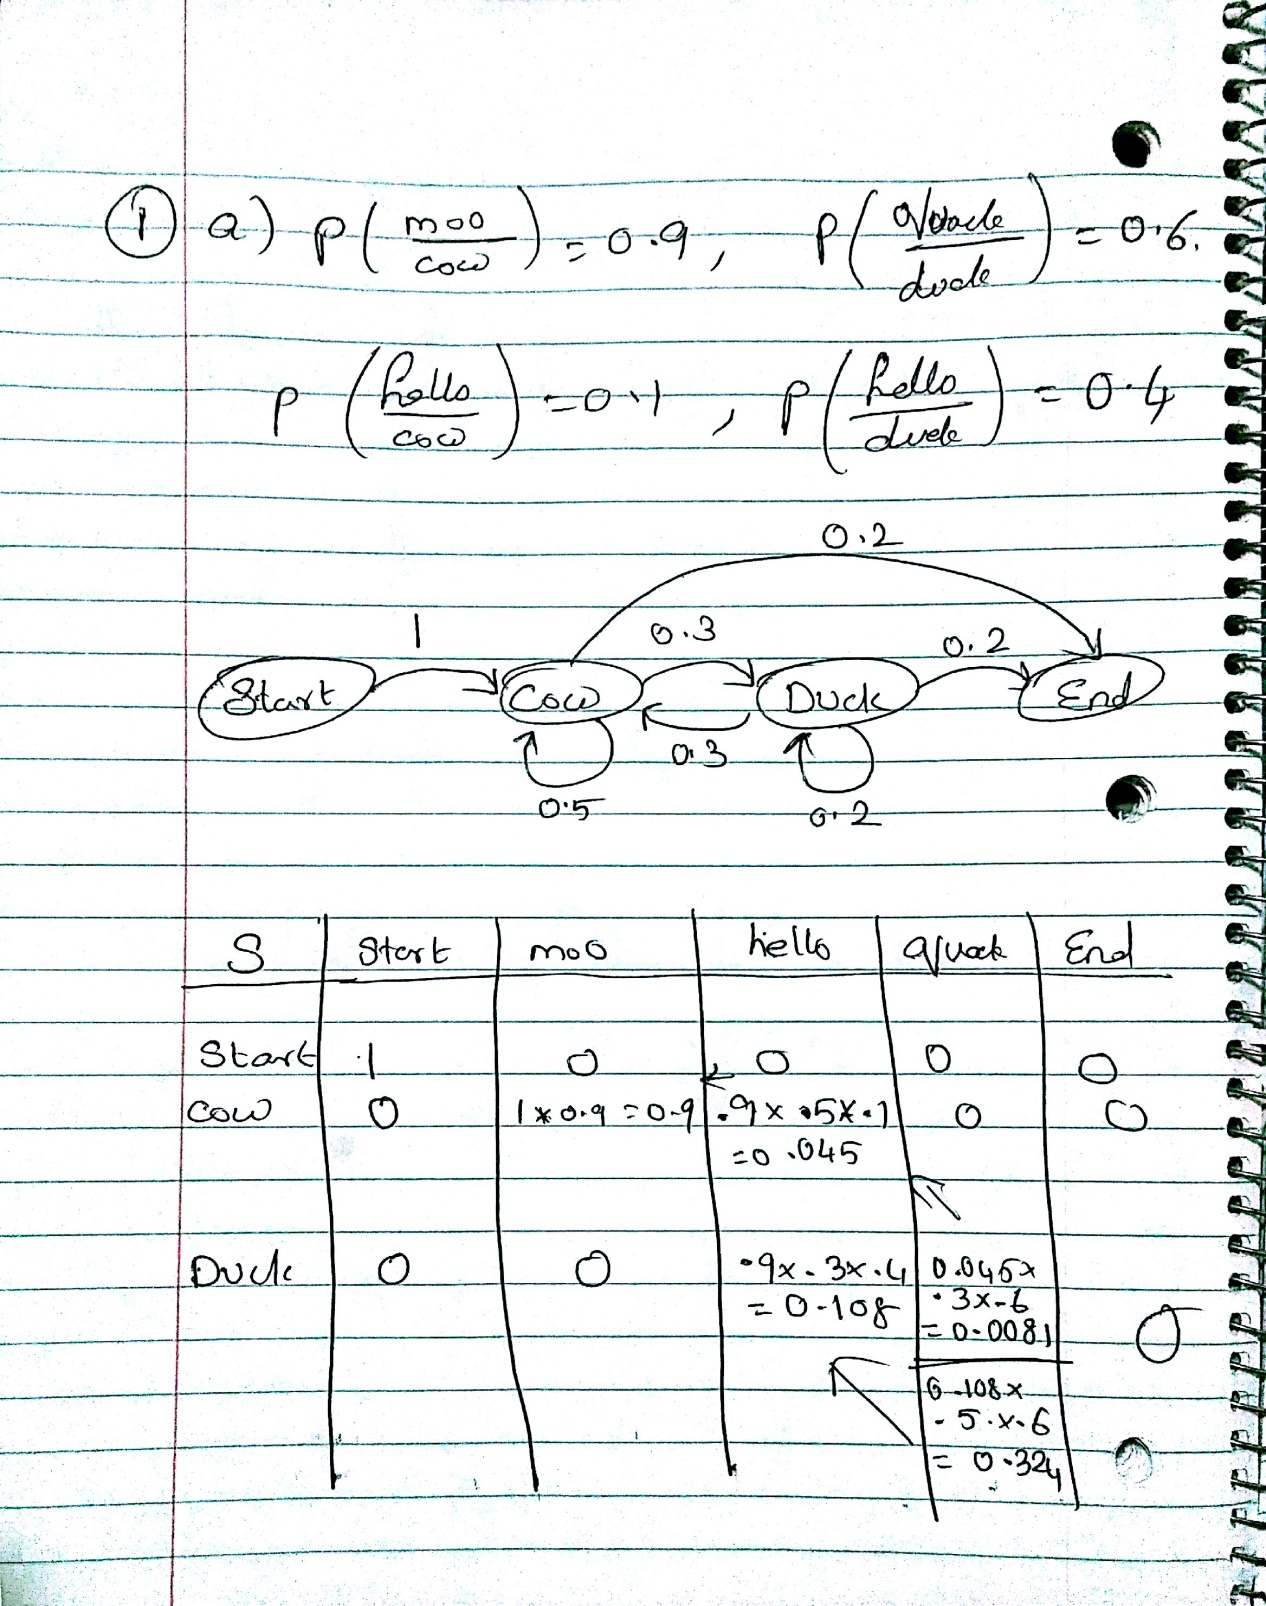 ① a) P(moo/cow) = 0.9, P(quack/duck) = 0.6.
P(hello/cow) = 0.1, P(hello/duck) = 0.4
0.2
1 0.3 0.2
Start Cow Duck End
0.3
0.5 0.2
S Start moo hello quack End
Start 1 0 0 0 0
Cow 0 1*0.9=0.9 .9x.5x.1 0 0
=0.045
Duck 0 0 .9x.3x.4 0.045x
=0.108 .3x.6
=0.0081 0
0.108x
.5x.6
=0.324